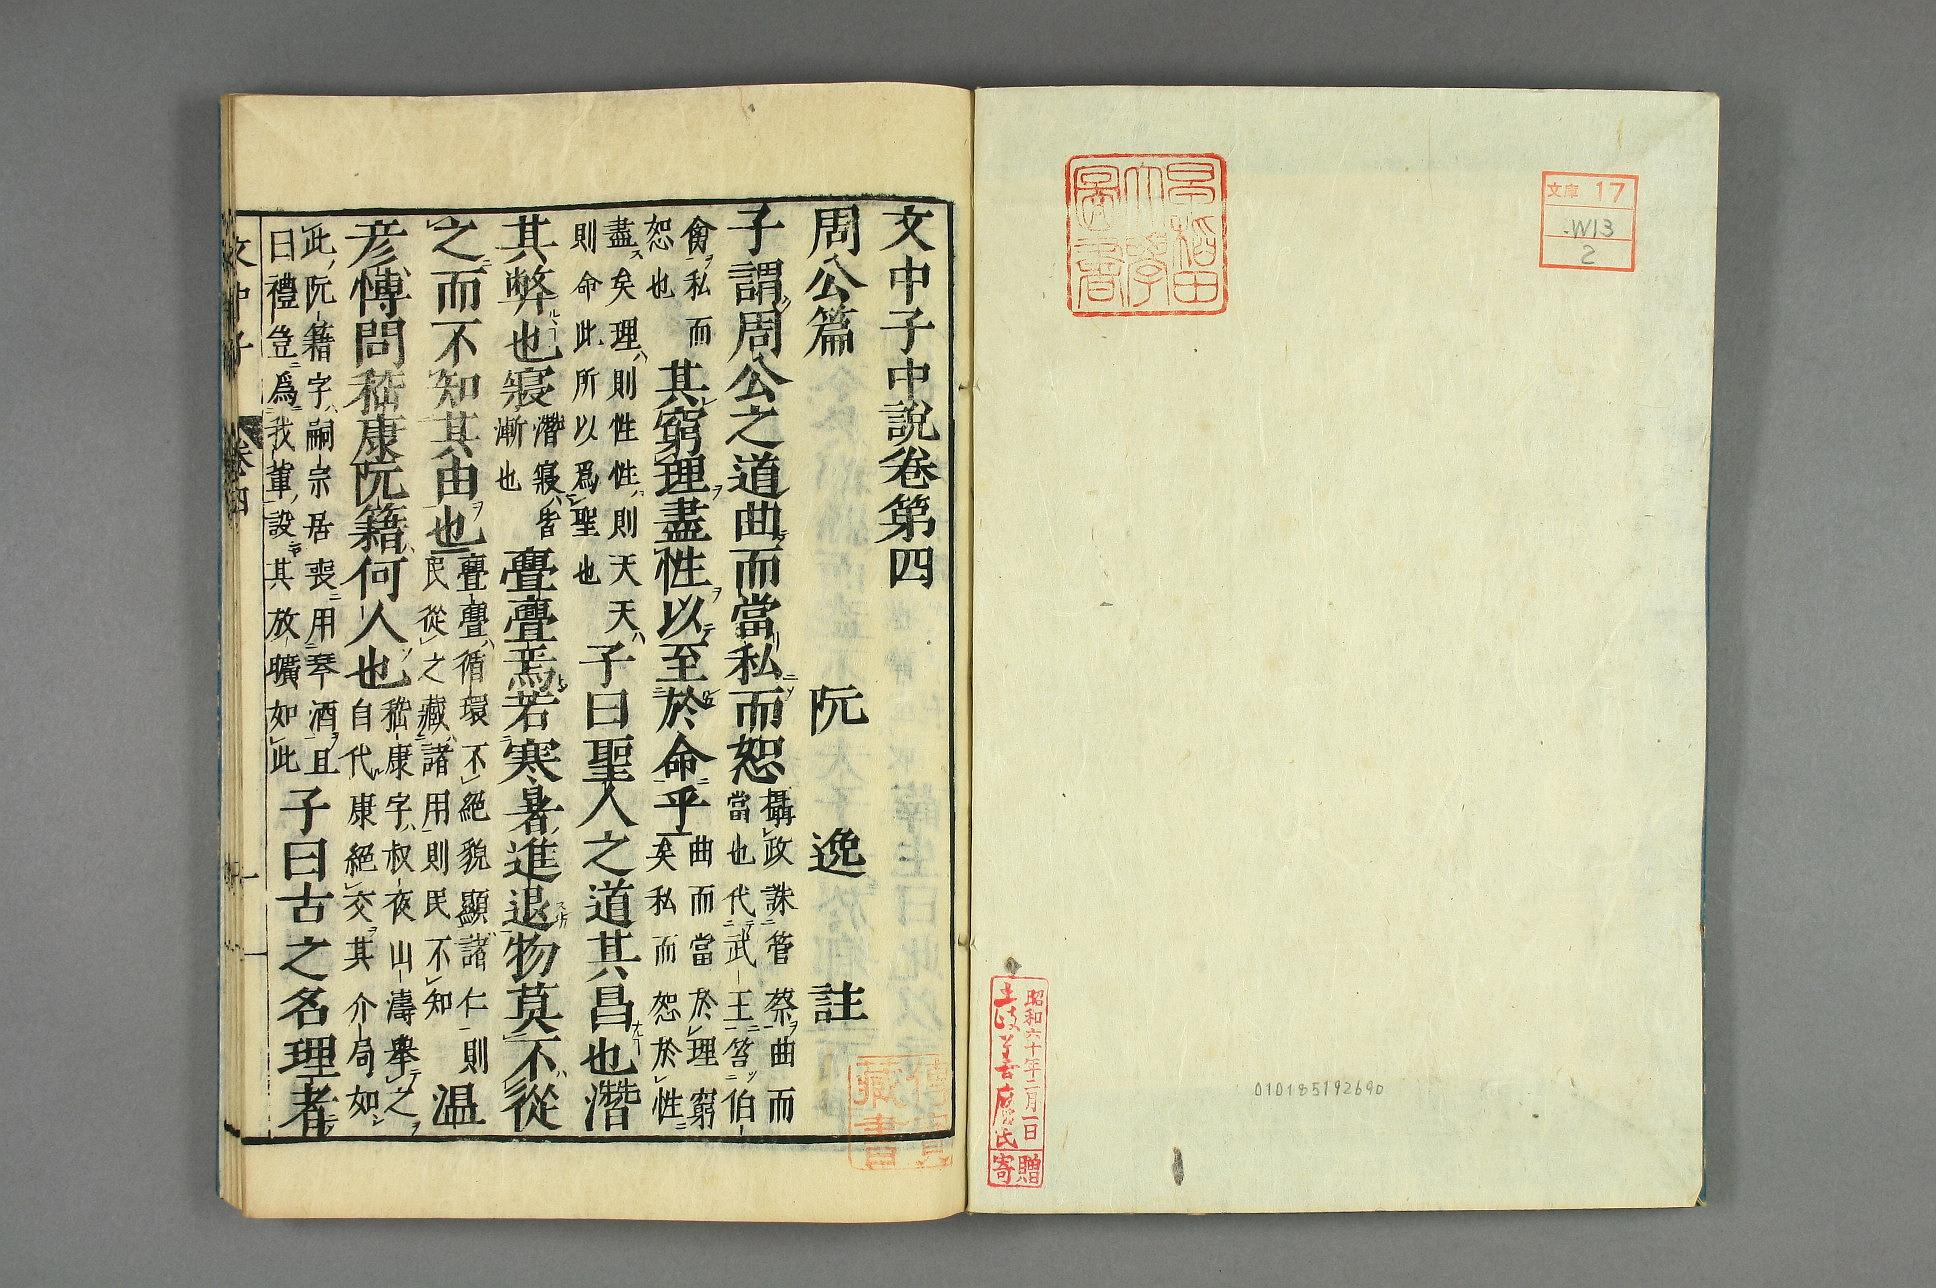 早稲田
大學
圖書
文庫 17
W13
2
昭和六十年二月一日
土岐善麿氏
寄贈
010185192690
文中子中說卷第四
周公篇 阮逸註
子謂周公之道曲而當私而恕攝政誅管蔡曲而當也代武王笞伯
禽私而恕也其窮理盡性以至於命乎曲而當於理窮矣私而恕於性
盡矣理則性性則天天則命此所以爲聖也子曰聖人之道其昌也潛
其弊也寢潛寢皆漸也亹亹焉若寒暑進退物莫不從
之而不知其由也亹亹循環不絕貌顯諸仁則民從之藏諸用則民不知温
彦愽問嵇康阮籍何人也嵇康字叔夜山濤舉之自代康絕交其介局如
此阮籍字嗣宗居喪用琴酒且曰禮豈爲我輩設其放曠如此子曰古之名理者
文中子 卷四 一
藏書